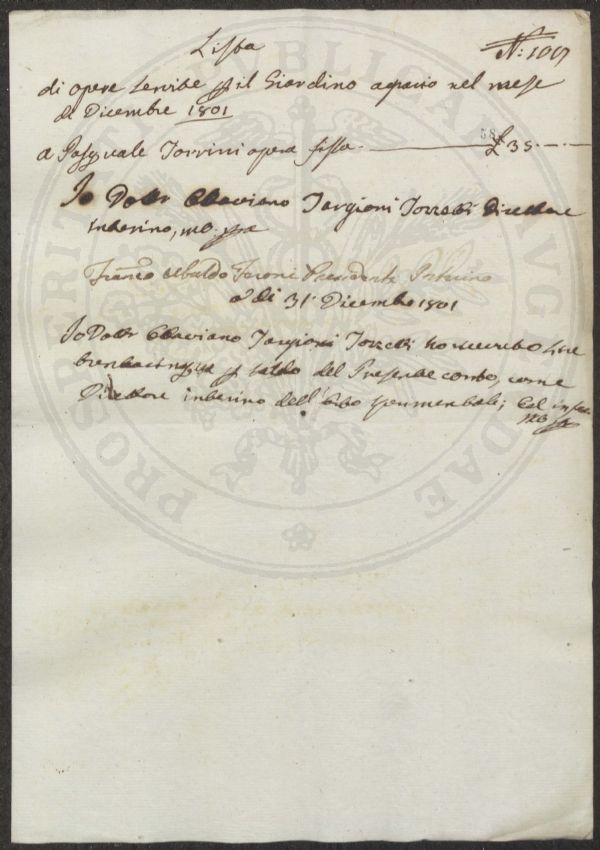 Lista
di opere servite p il Giardino agrario nel mese
di Dicembre 1801
a Pasquale Torrini opera fissa £ 35
Io Dottr Ottaviano Targioni Tozzetti Direttore
interino, mo ppa
Franco Sebaldo Feroni Presidente Interino
a di 31 Dicembre 1801
Io Dottr Ottaviano Targioni Tozzetti ho ricevuto Lire
trentacinque p saldo del Presente conto, come
Direttore interino dell'Orto sperimentale;
PROSPERITATI PVBLICAE AVGENDAE